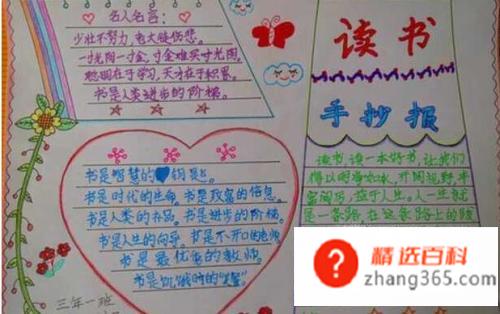 名人名言：
少壮不努力，老大徒伤悲。
一光阴一寸金，寸金难买寸光阴。
聪明在于学习，天才在于积累。
书是人类进步的阶梯。
书是智慧的钥匙。
书是时代的生命。书是致富的信息。
书是人类的
书是进步的阶梯。
书是人生的向导。书是不开口的老师
书是最优秀的教师。
书是饥饿时的
三年一班
读书
手抄报
读书，读一本好书，让我们
得以明净如水，开阔视野丰
富阅历，益于人生。人一生就
是一条路，在这条路上的跋
精选百科
zhang365.com